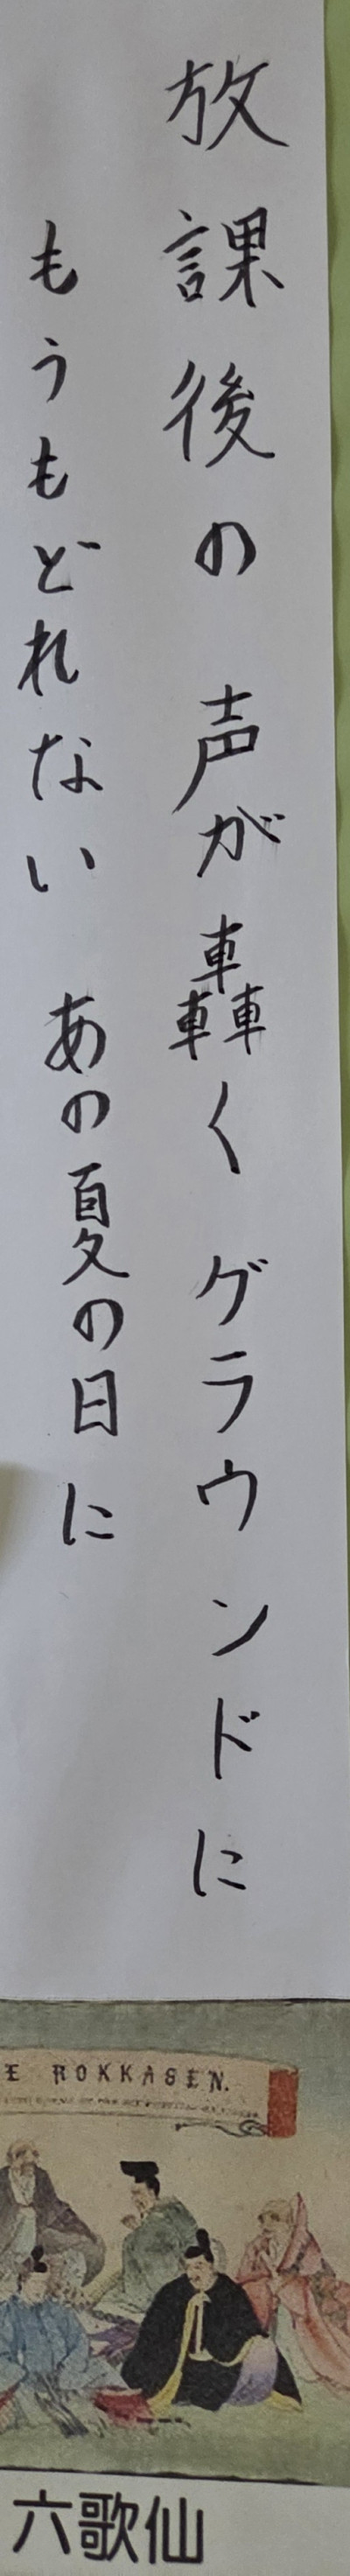 放課後の声が轟くグラウンドに
もうもどれない あの夏の日に
E ROKKASEN.
六歌仙